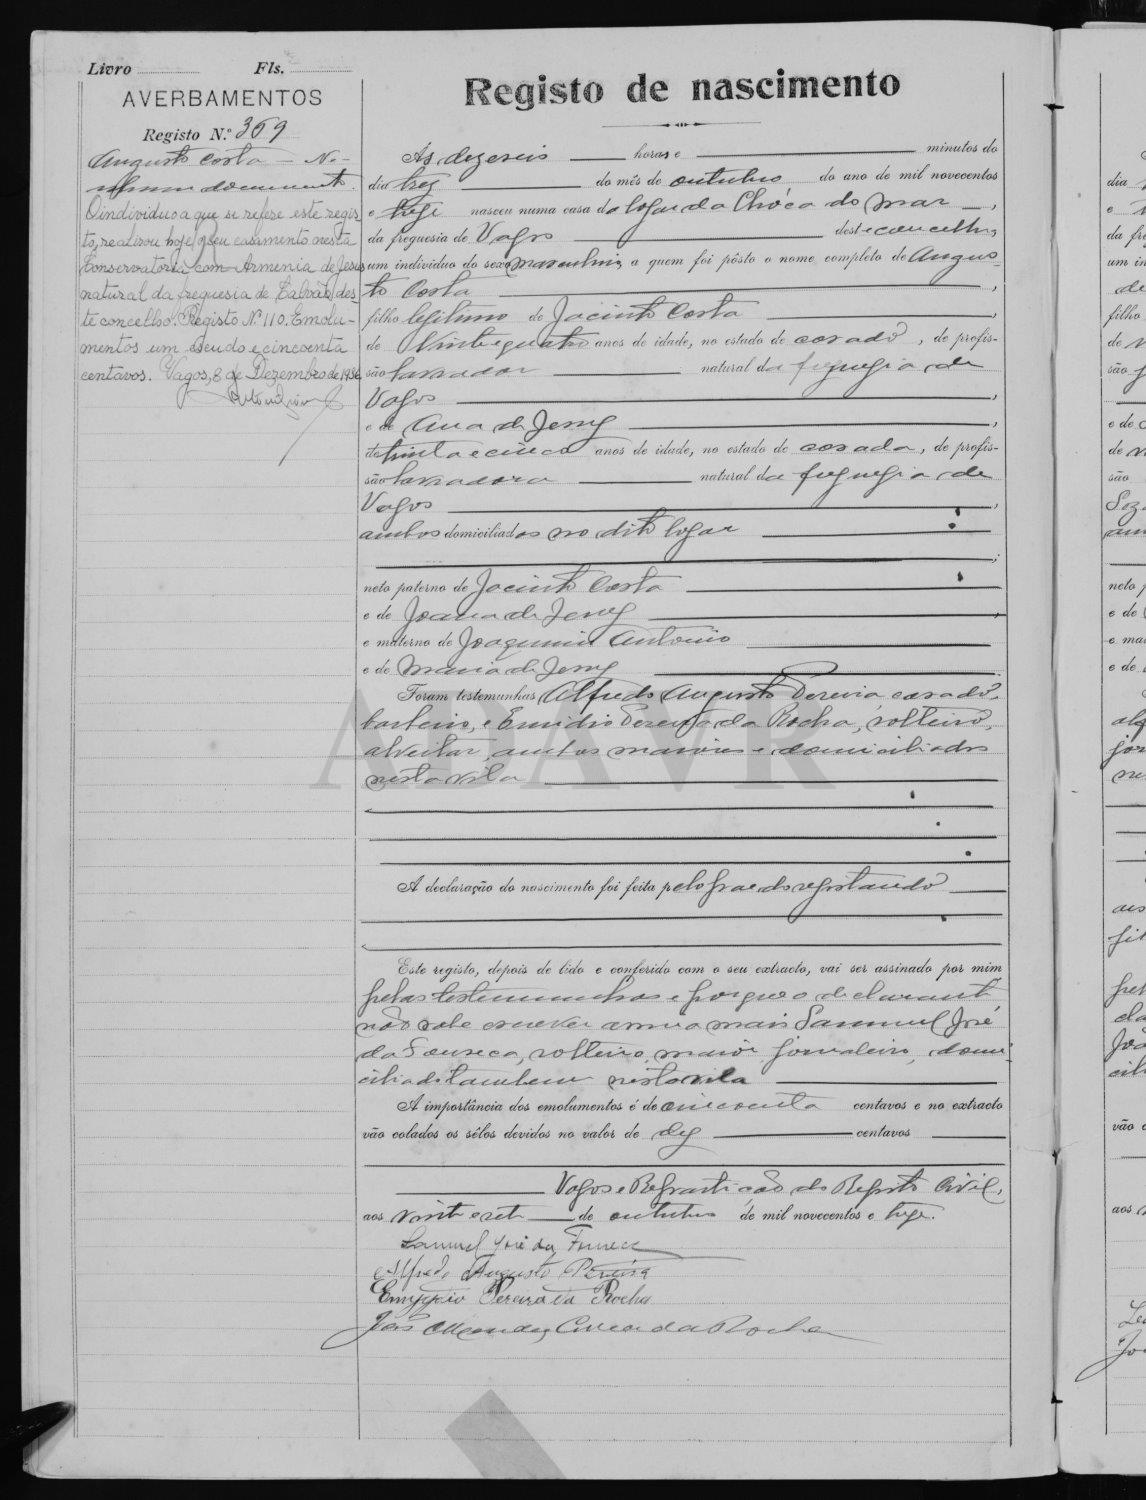 Livro Fls.
AVERBAMENTOS
Registo N.º 369
Augusto Costa — Ne-
nhum documento.
O individuo a que se refere este regis-
to, realizou hoje o seu casamento nesta
Conservatoria com Armenia de Jesus
natural da freguesia de Calvão des-
te concelho. Registo Nº 110. Emolu-
mentos um escudo e cincoenta
centavos. Vagos, 8 de Dezembro de 1936
Registo de nascimento
Ás dezeseis horas e minutos do
dia trez do mês de outubro do ano de mil novecentos
e treze nasceu numa casa do logar da Chóca do Mar,
da freguesia de Vagos deste concelho,
um individuo do sexo masculino a quem foi pôsto o nome completo de Augus-
to Costa,
filho legitimo de Jacinto Costa,
de vinte e quatro anos de idade, no estado de casado, de profis-
são lavrador natural da freguesia de
Vagos,
e de Ana de Jesus,
de trinta e cinco anos de idade, no estado de casada, de profis-
são lavradora natural da freguesia de
Vagos,
ambos domiciliados no dito logar
neto paterno de Jacinto Costa
e de Joana de Jesus
e materno de Joaquim Antonio
e de Maria de Jesus
Foram testemunhas Alfredo Augusto Pereira, casado,
barbeiro, e Emidio Pereira da Rocha, solteiro,
alveitar, ambos maiores e domiciliados
nesta vila
ADAVR
A declaração do nascimento foi feita pelo pae do registando
Este registo, depois de lido e conferido com o seu extracto, vai ser assinado por mim
pelas testemunhas e porque o declarante
não sabe escrever assina mais Samuel José
da Fonseca, solteiro, maior, jornaleiro, domi-
ciliado tambem nesta vila
A importância dos emolumentos é de cincoenta centavos e no extracto
vão colados os sêlos devidos no valor de dez centavos
Vagos e Repartição do Registo Civil,
aos vinte e sete de outubro de mil novecentos e treze.
Samuel José da Fonseca
Alfredo Augusto Pereira
Emygdio Pereira da Rocha
João Mendes Correia da Rocha